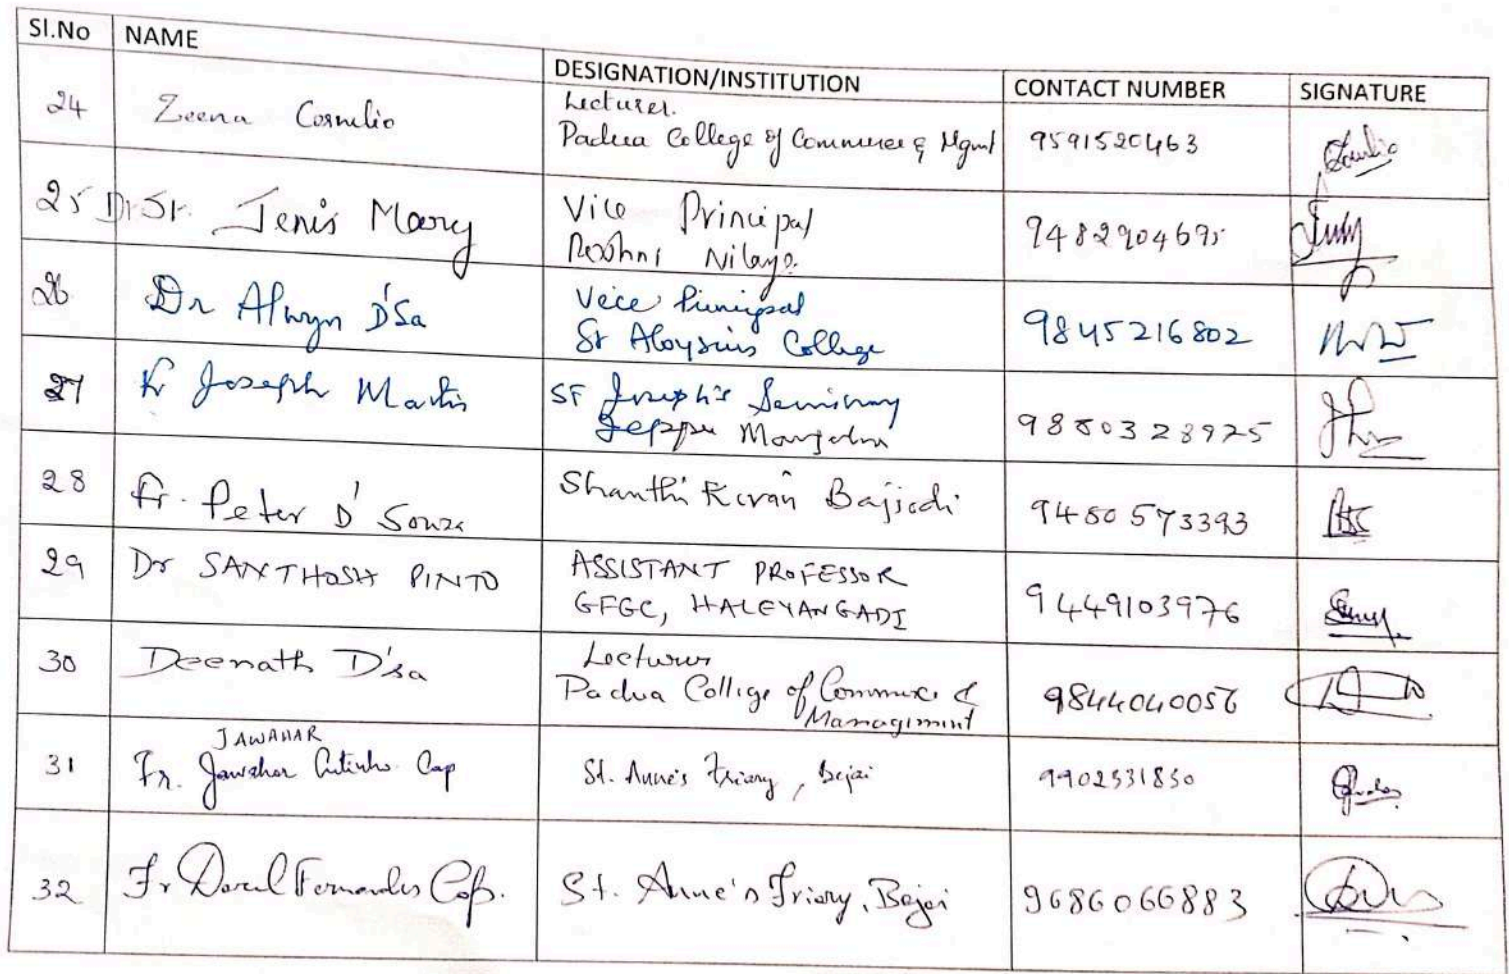 Sl.No NAME DESIGNATION/INSTITUTION CONTACT NUMBER SIGNATURE
24 Zeena Cornelio Lecturer.
Padua College of Commerce & Mgmt 9591520463
25 Dr Sr. Jenis Mary Vice Principal
Roshni Nilaya. 9482904695
26 Dr Alwyn D'Sa Vice Principal
St Aloysius College 9845216802
27 Fr Joseph Martis St Joseph's Seminary
Jeppu Mangalore 9880328925
28 Fr. Peter D'Souza Shanthi Kiran Bajjodi 9480573393
29 Dr SANTHOSH PINTO ASSISTANT PROFESSOR
GFGC, HALEYANGADI 9449103976
30 Deenath D'sa Lecturer
Padua College of Commerce &
Management 9844040056
JAWAHAR
31 Fr. Jawahar Cutinho Cap St. Anne's Friary, Bejai 9902531850
32 Fr Fernandes Cap. St. Anne's Friary, Bejai 9686066883